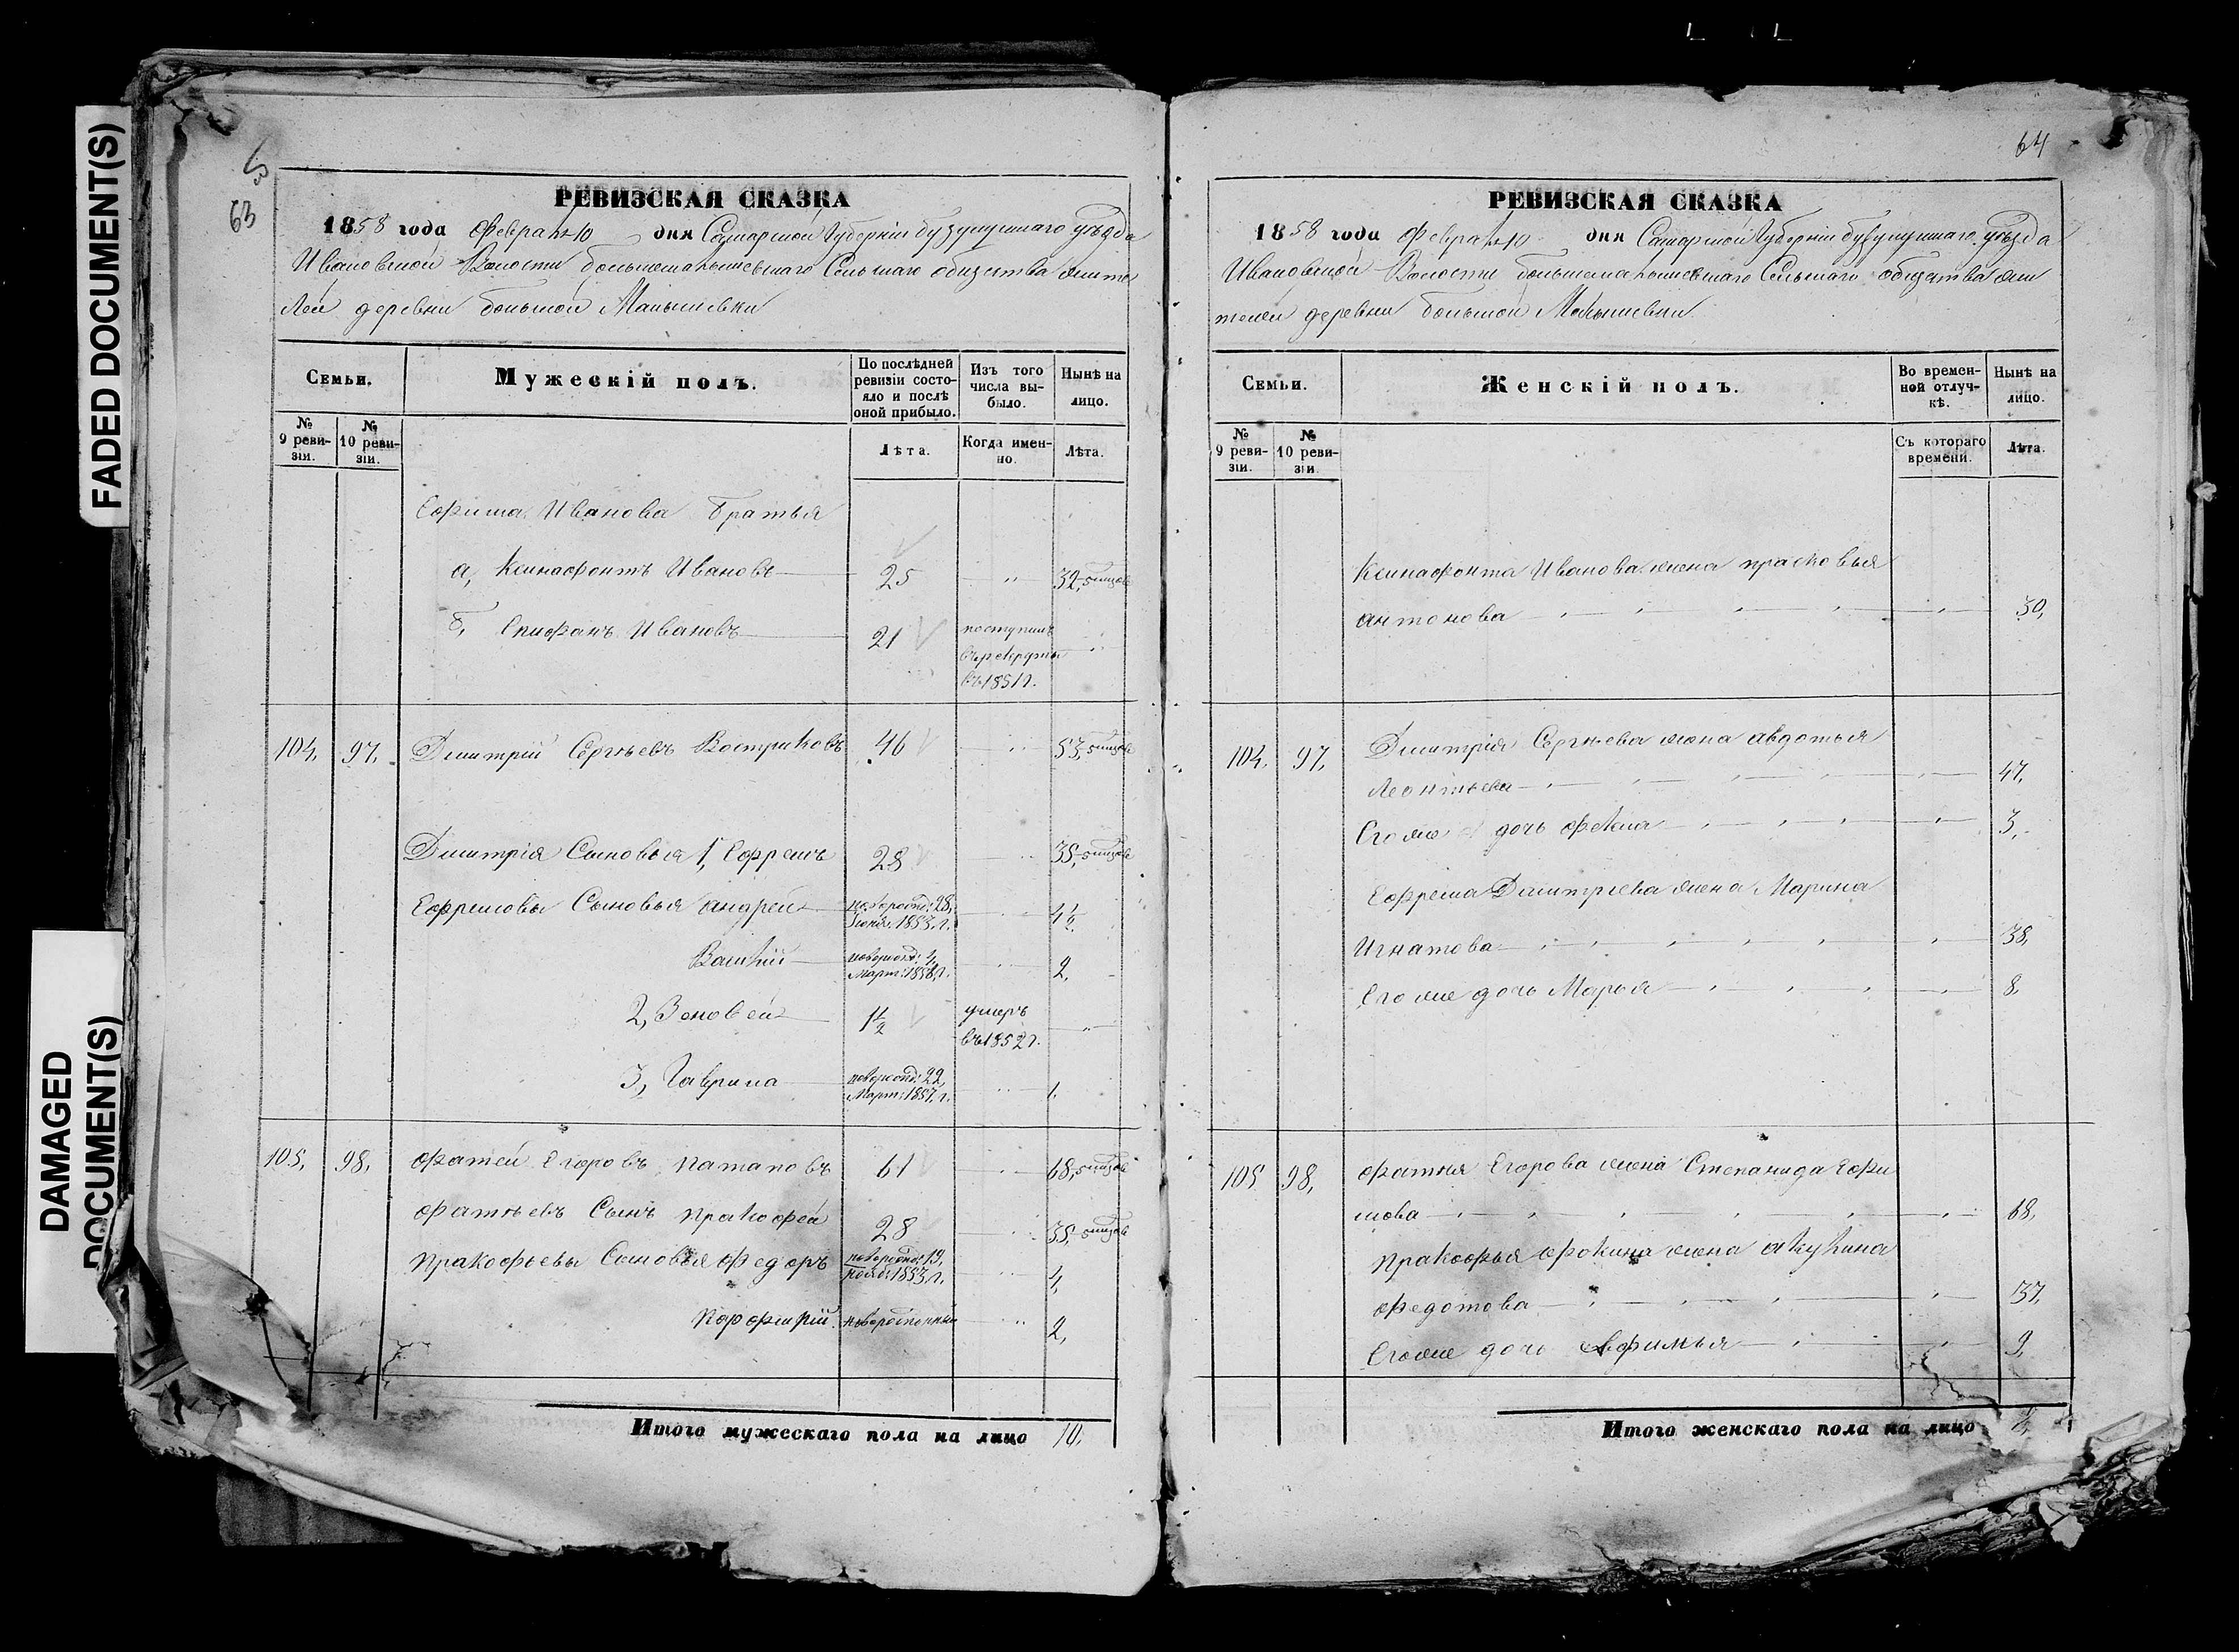 FADED DOCUMENT(S)
DAMAGED
DOCUMENT(S)
63
РЕВИЗСКАЯ СКАЗКА
1858 года Февраля 10 дня Самарской Губерніи бузулуцкаго уѣзда
Ивановской Волости большемалышевскаго Сельскаго общества жите
лей деревни большой Малышевки
Семьи.
Мужескій полъ.
По послѣдней
ревизіи состо-
яло и послѣ
оной прибыло.
Изъ того
числа вы-
было.
Нынѣ на
лицо.
№
9 реви-
зіи.
№
10 реви-
зіи.
Лѣта.
Когда имен-
но.
Лѣта.
Ефима Иванова Братья
а, Ксинафонтъ Ивановъ 25 " 32,
б, Епифанъ Ивановъ 21 поступилъ
въ рекруты
въ 1851 г.
104. 97. Дмитрій Сергѣевъ Востриковъ 46 " 53,
Дмитрія Сыновья 1, Ефремъ 28 " 35,
Ефремовы Сыновья андрей новорожд: 28, " 4½
Іюня: 1853. г.
Василій новорожд: 4, " 2,
Март: 1856, г.
2, Зоновей 1½ умеръ "
въ 1852 г.
3, Гаврила новорожд: 22, " 1.
Март: 1857, г.
105, 98, фатей Егоровъ Патаповъ 61 " 68,
фатѣевъ Сынъ пракофей 28 " 35,
пракофьевы Сыновья федоръ новорожд: 19, " 4,
нояб: 1853, г.
Порфирій новорожденный " 2,
Итого мужескаго пола на лицо 10.
64
РЕВИЗСКАЯ СКАЗКА
1858 года Февраля 10 дня Самарской Губерніи бузулуцкаго уѣзда
Ивановской Волости большемалышевскаго Сельскаго общества жи
телей деревни большой Малышевки
Семьи.
Женскій полъ.
Во времен-
ной отлуч-
кѣ.
Нынѣ на
лицо.
№
9 реви-
зіи.
№
10 реви-
зіи.
Съ котораго
времени.
Лѣта.
Ксинафонта Иванова жена прасковья
антонова 30,
104. 97, Дмитрія Сергѣева жена авдотья
Леонтьева 47,
Егоже дочь фекла 3,
Ефрема Дмитріева жена Марина
Игнатова 38,
Егоже дочь Марья 8,
105 98, фатѣя Егорова жена Степанида Ефи
мова 68,
пракофья жена акулина
федотова 37,
Егоже дочь Афимья 9,
Итого женскаго пола на лицо